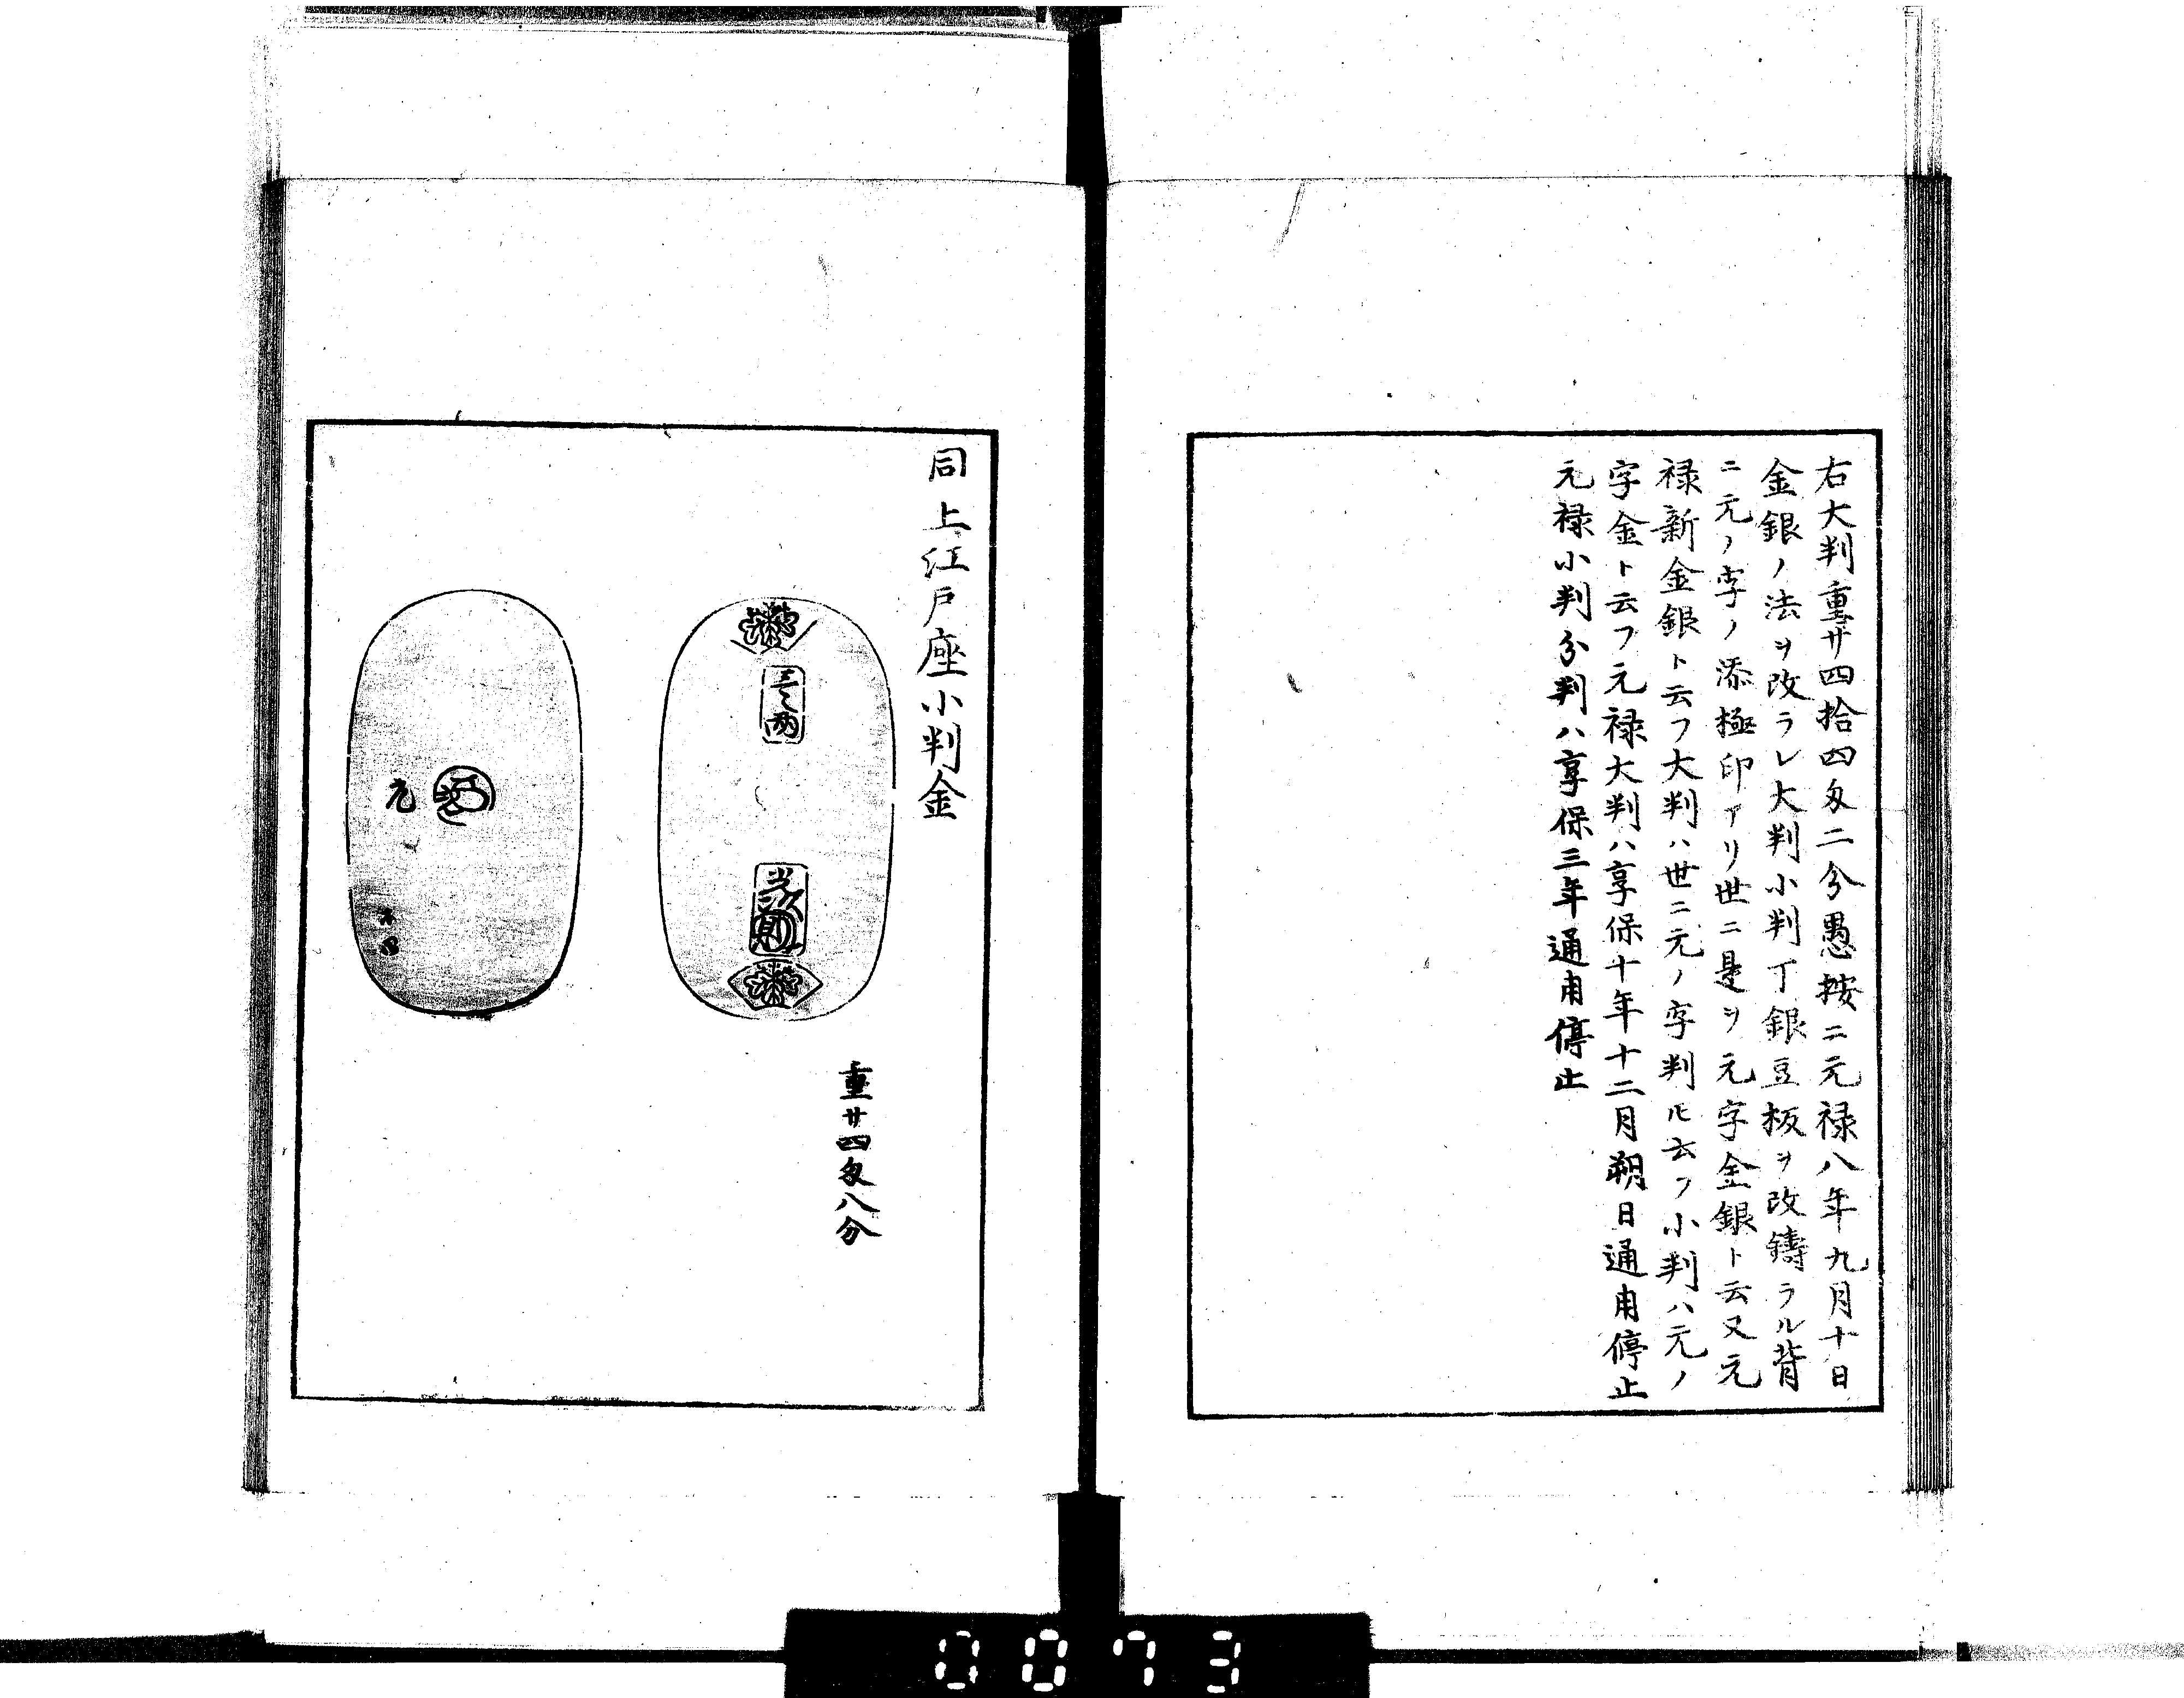 右大判重廿四拾四匁二分愚按ニ元禄八年九月十日
金銀ノ法ヲ改ラレ大判小判丁銀豆板ヲ改鋳ラル背
ニ元ノ字ノ添極印アリ世ニ是ヲ元字金銀ト云又元
禄新金銀ト云フ大判ハ世ニ元ノ字判ﾓ云フ小判ハ元ノ
字金ト云フ元禄大判ハ享保十年十二月朔日通用停止
元禄小判分判ハ享保三年通用停止
同上江戸座小判金
重廿四匁八分
元
0073